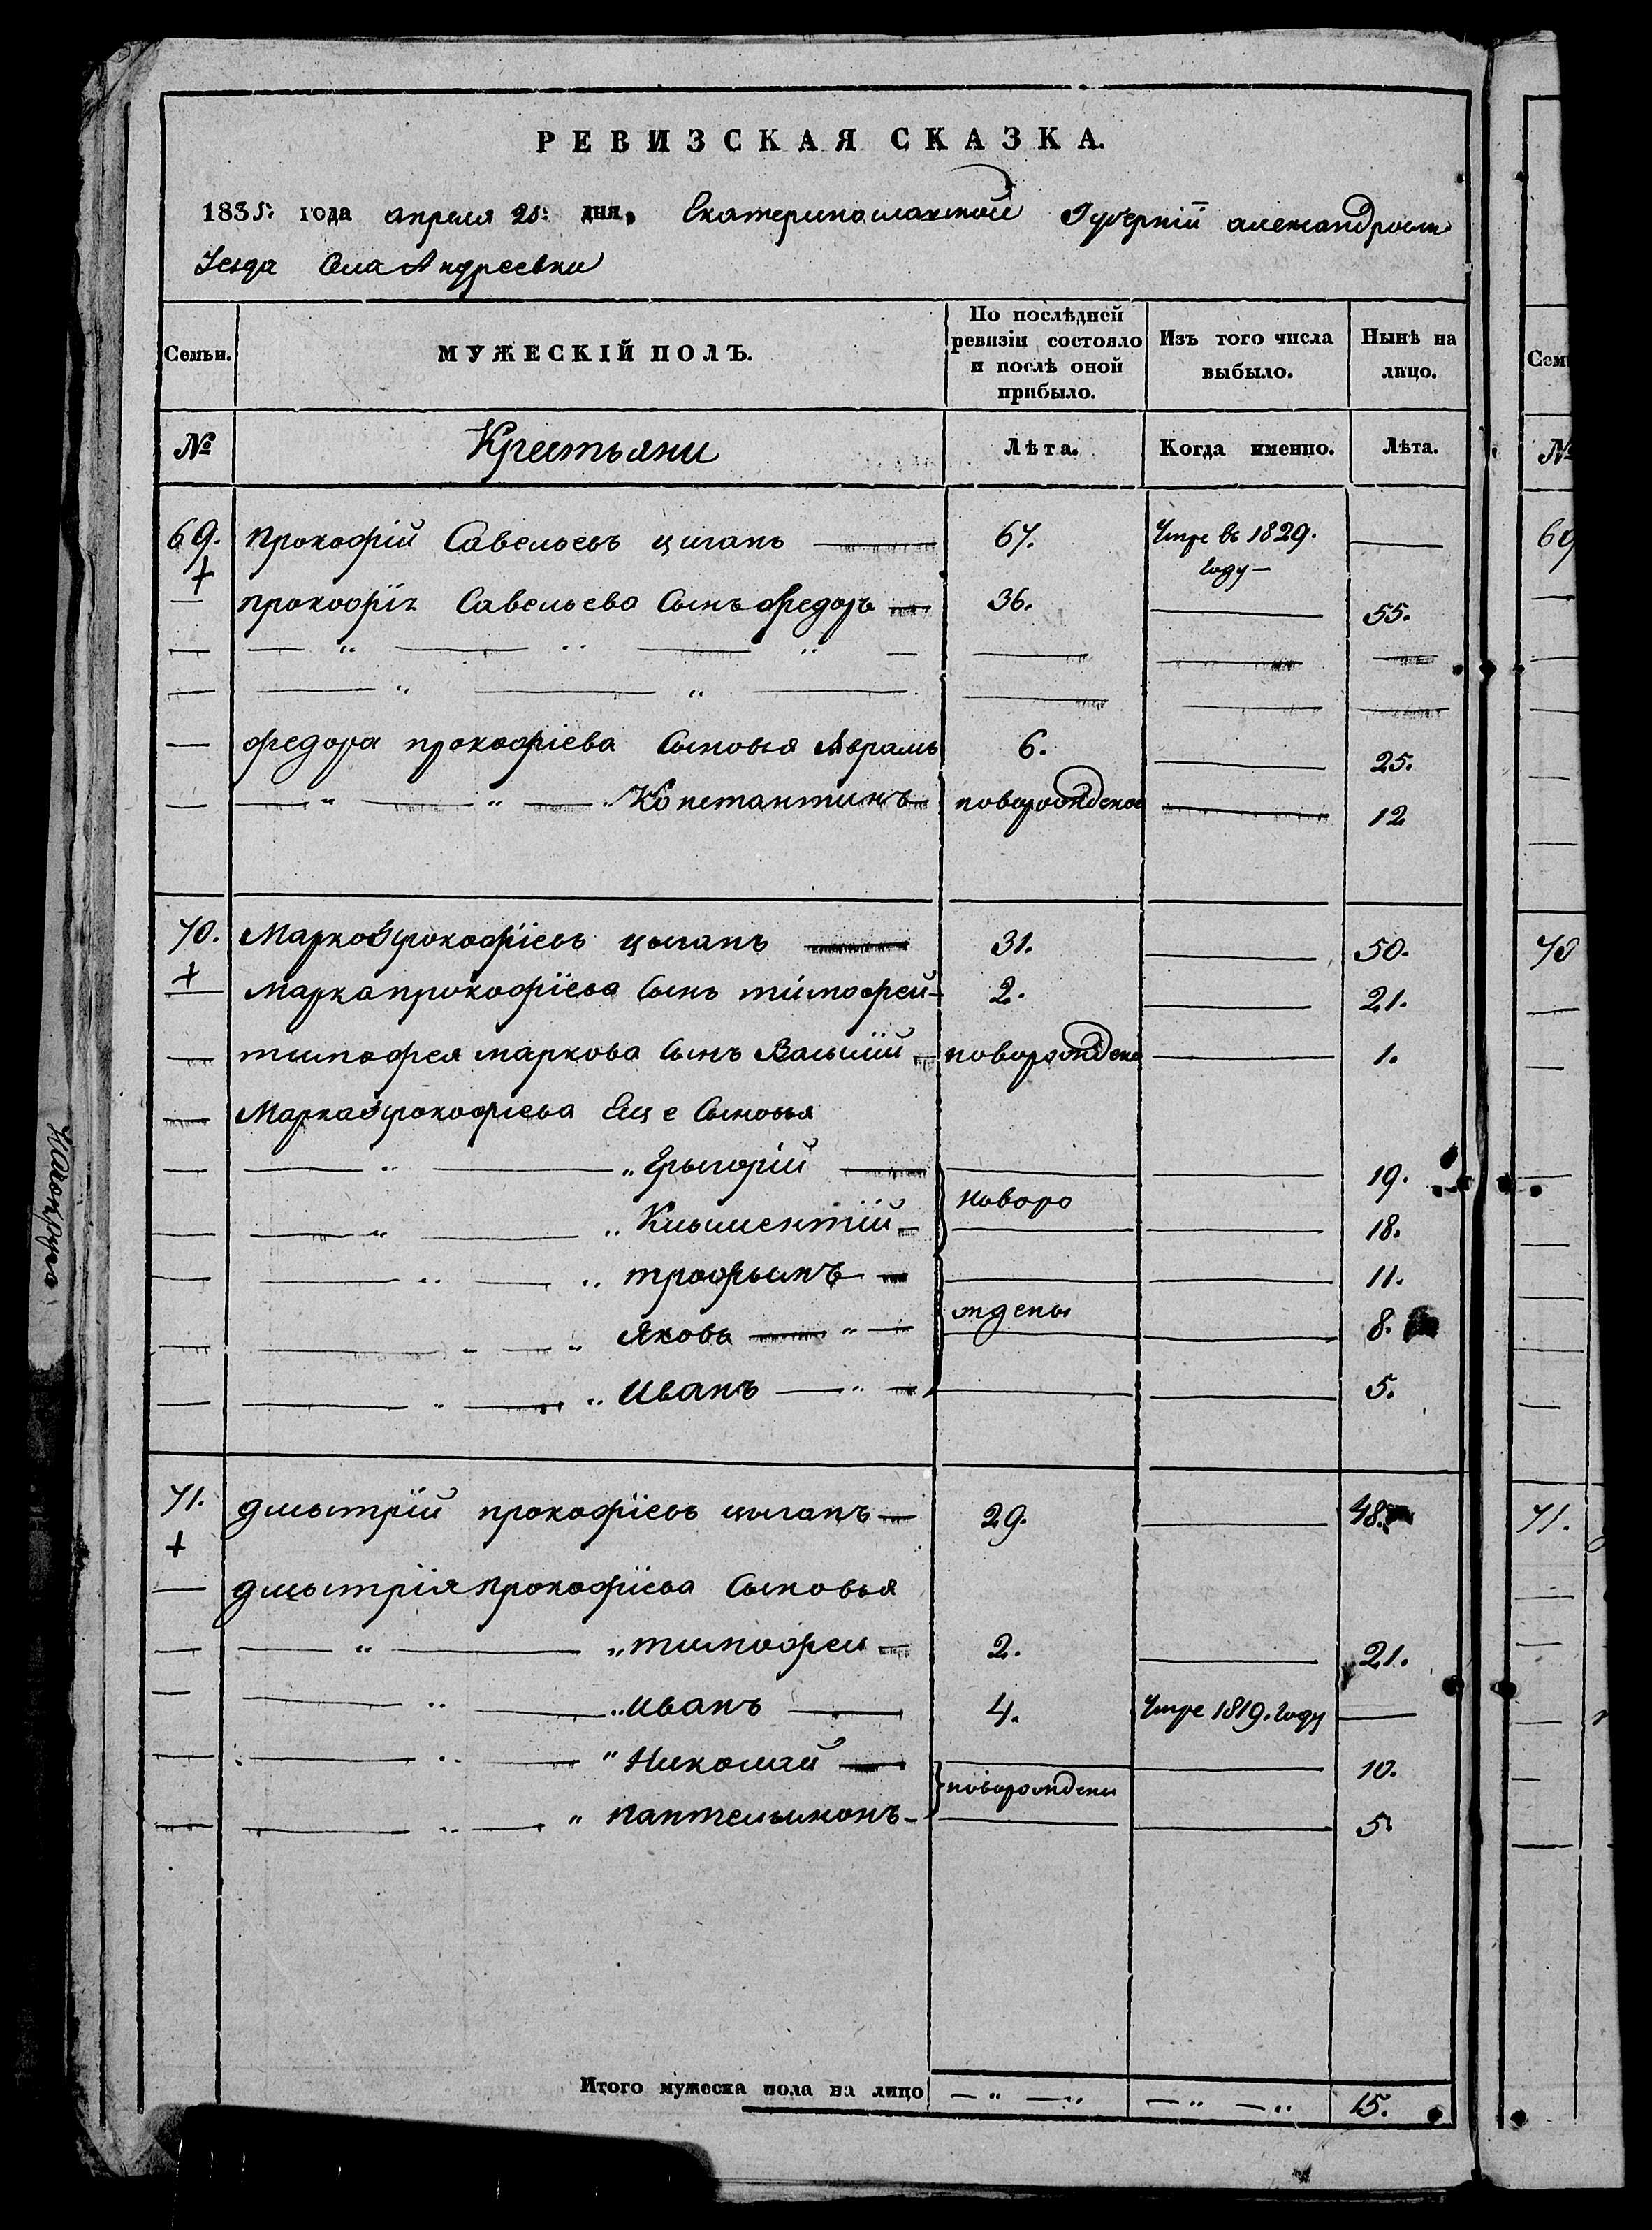 РЕВИЗСКАЯ СКАЗКА.
1835: года апреля 25: дня, Екатеринославской Губернїи александровск
Уезда Села Андреевки
Семьи.
МУЖЕСКІЙ ПОЛЪ.
По послѣдней ревизіи состояло и послѣ оной прибыло.
Изъ того числа выбыло.
Нынѣ на лицо.
№ Крестьяни Лѣта. Когда именно. Лѣта.
69. прокофій Савельевъ циганъ 67. Умре въ 1829. году —
+ прокофія Савельева Сынъ федоръ 36. — 55.
федора прокофіева Сыновья Аврамъ 6. — 25.
Константинъ новорожденой — 12
70. Марко прокофїевъ цыганъ 31. — 50.
+ марка прокофїева Сынъ тимофей 2. — 21.
тимофея маркова Сынъ Василїй новорождено — 1.
Марка прокофіева Еще Сыновья
„ Грыгорій — 19.
новоро
„ Клыментїй — 18.
„ трофымъ — 11.
ждены
„ Яковъ — 8.
„ Иванъ — 5.
71. дмытрїй прокофїевъ цыганъ — 29. — 48.
+
дмытрія прокофїева Сыновья
„ тимофеи — 2. — 21.
„ иванъ — 4. Умре 1819. году —
„ Николай — 10.
новорождены
„ пантелымонъ — 5
Итого мужеска пола на лицо — „ — „ — „ — „ 15.
Сем
№
69
70
71.